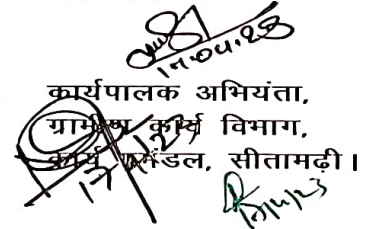 17.04.23
कार्यपालक अभियंता,
ग्रामीण कार्य विभाग,
कार्य प्रमंडल, सीतामढ़ी।